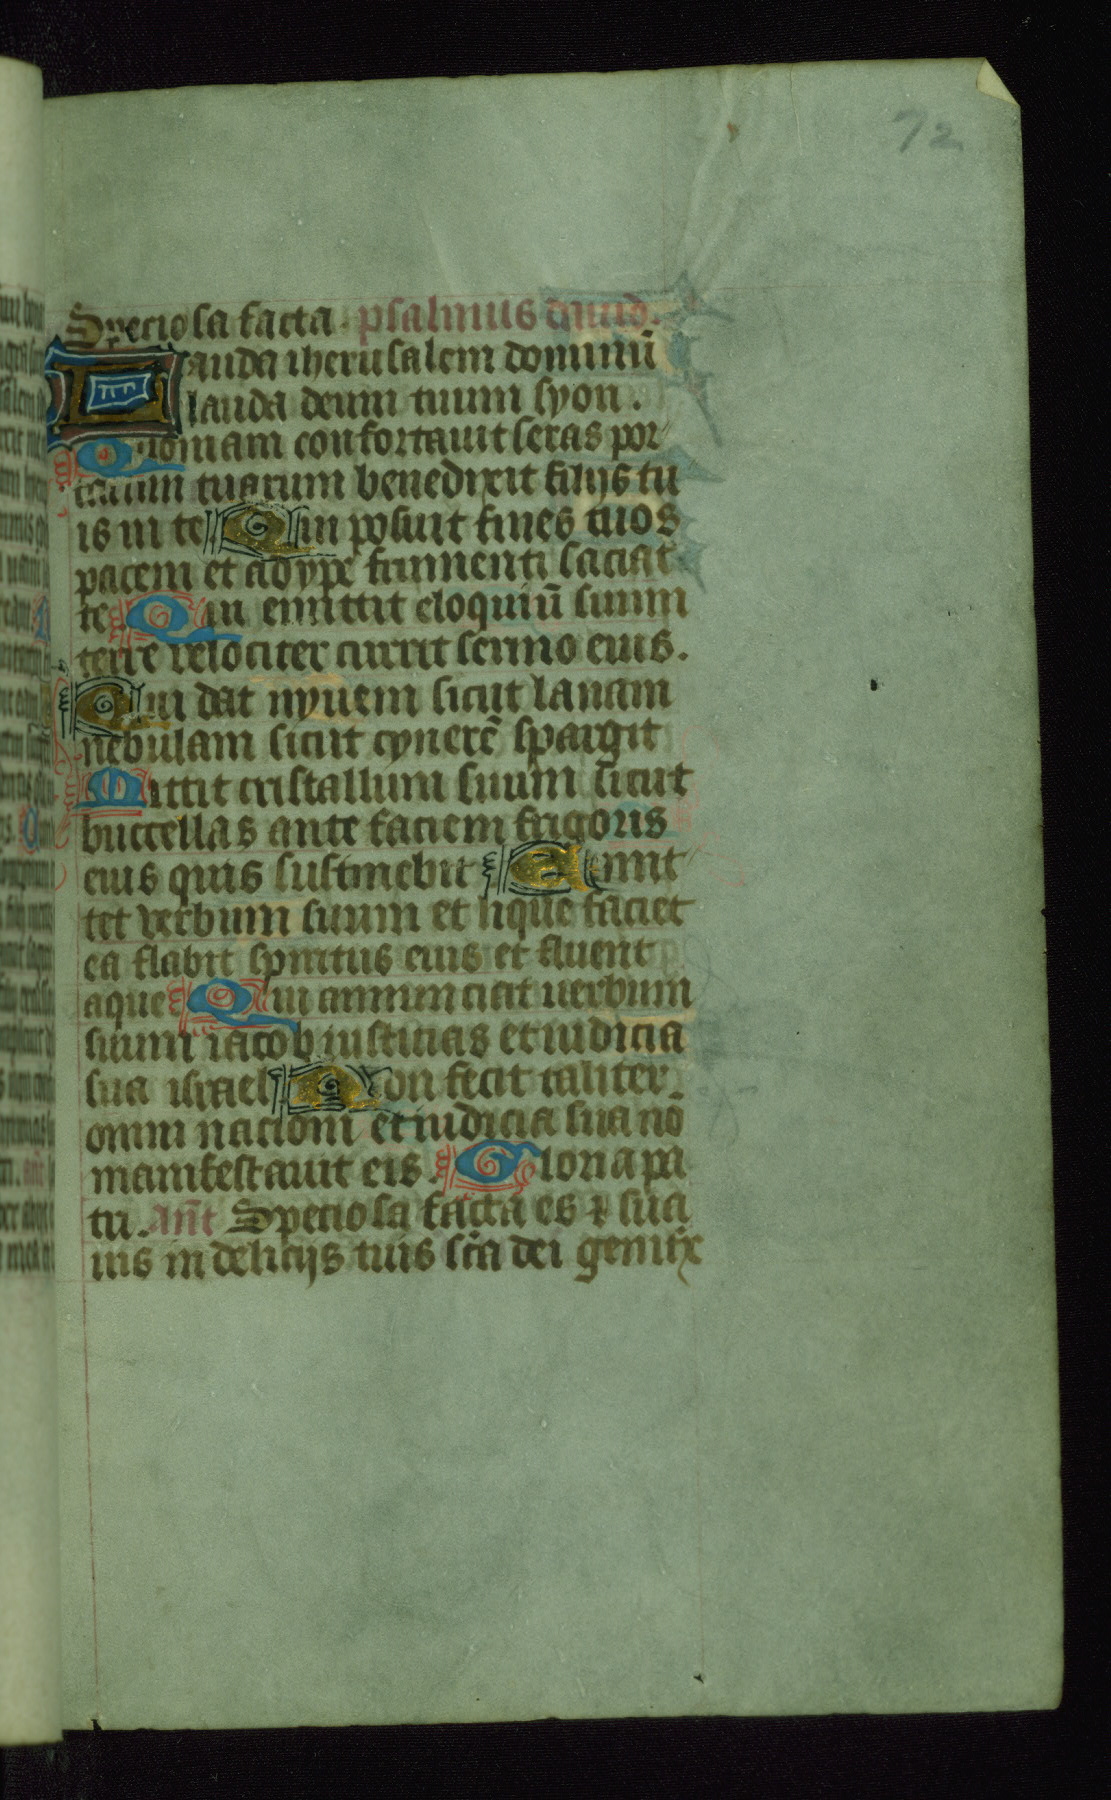 72
Speciosa facta. psalmus dauid.
Lauda iherusalem dominū
lauda deum tuum syon.
Quoniam confortauit seras por
tarum tuarum benedixit filijs tu
is in te Qui posuit fines tuos
pacem et adype frumenti saciat
te Qui emittit eloquiū suum
terre velociter currit sermo eius.
Qui dat nyuem sicut lanam
nebulam sicut cynerē spargit
Mittit cristallum suum sicut
buccellas ante faciem frigoris
eius quis sustinebit Emit
tet verbum suum et lique faciet
ea flabit spiritus eius et fluent
aque Qui annunciat uerbum
suum iacob iusticias et iudicia
sua israel Non fecit taliter
omni nacioni et iudicia sua nō
manifestauit eis. Gloria pa
tri. Añt Speciosa facta es ⁊ sua
uis in delicijs tuis sc̄a dei genitx